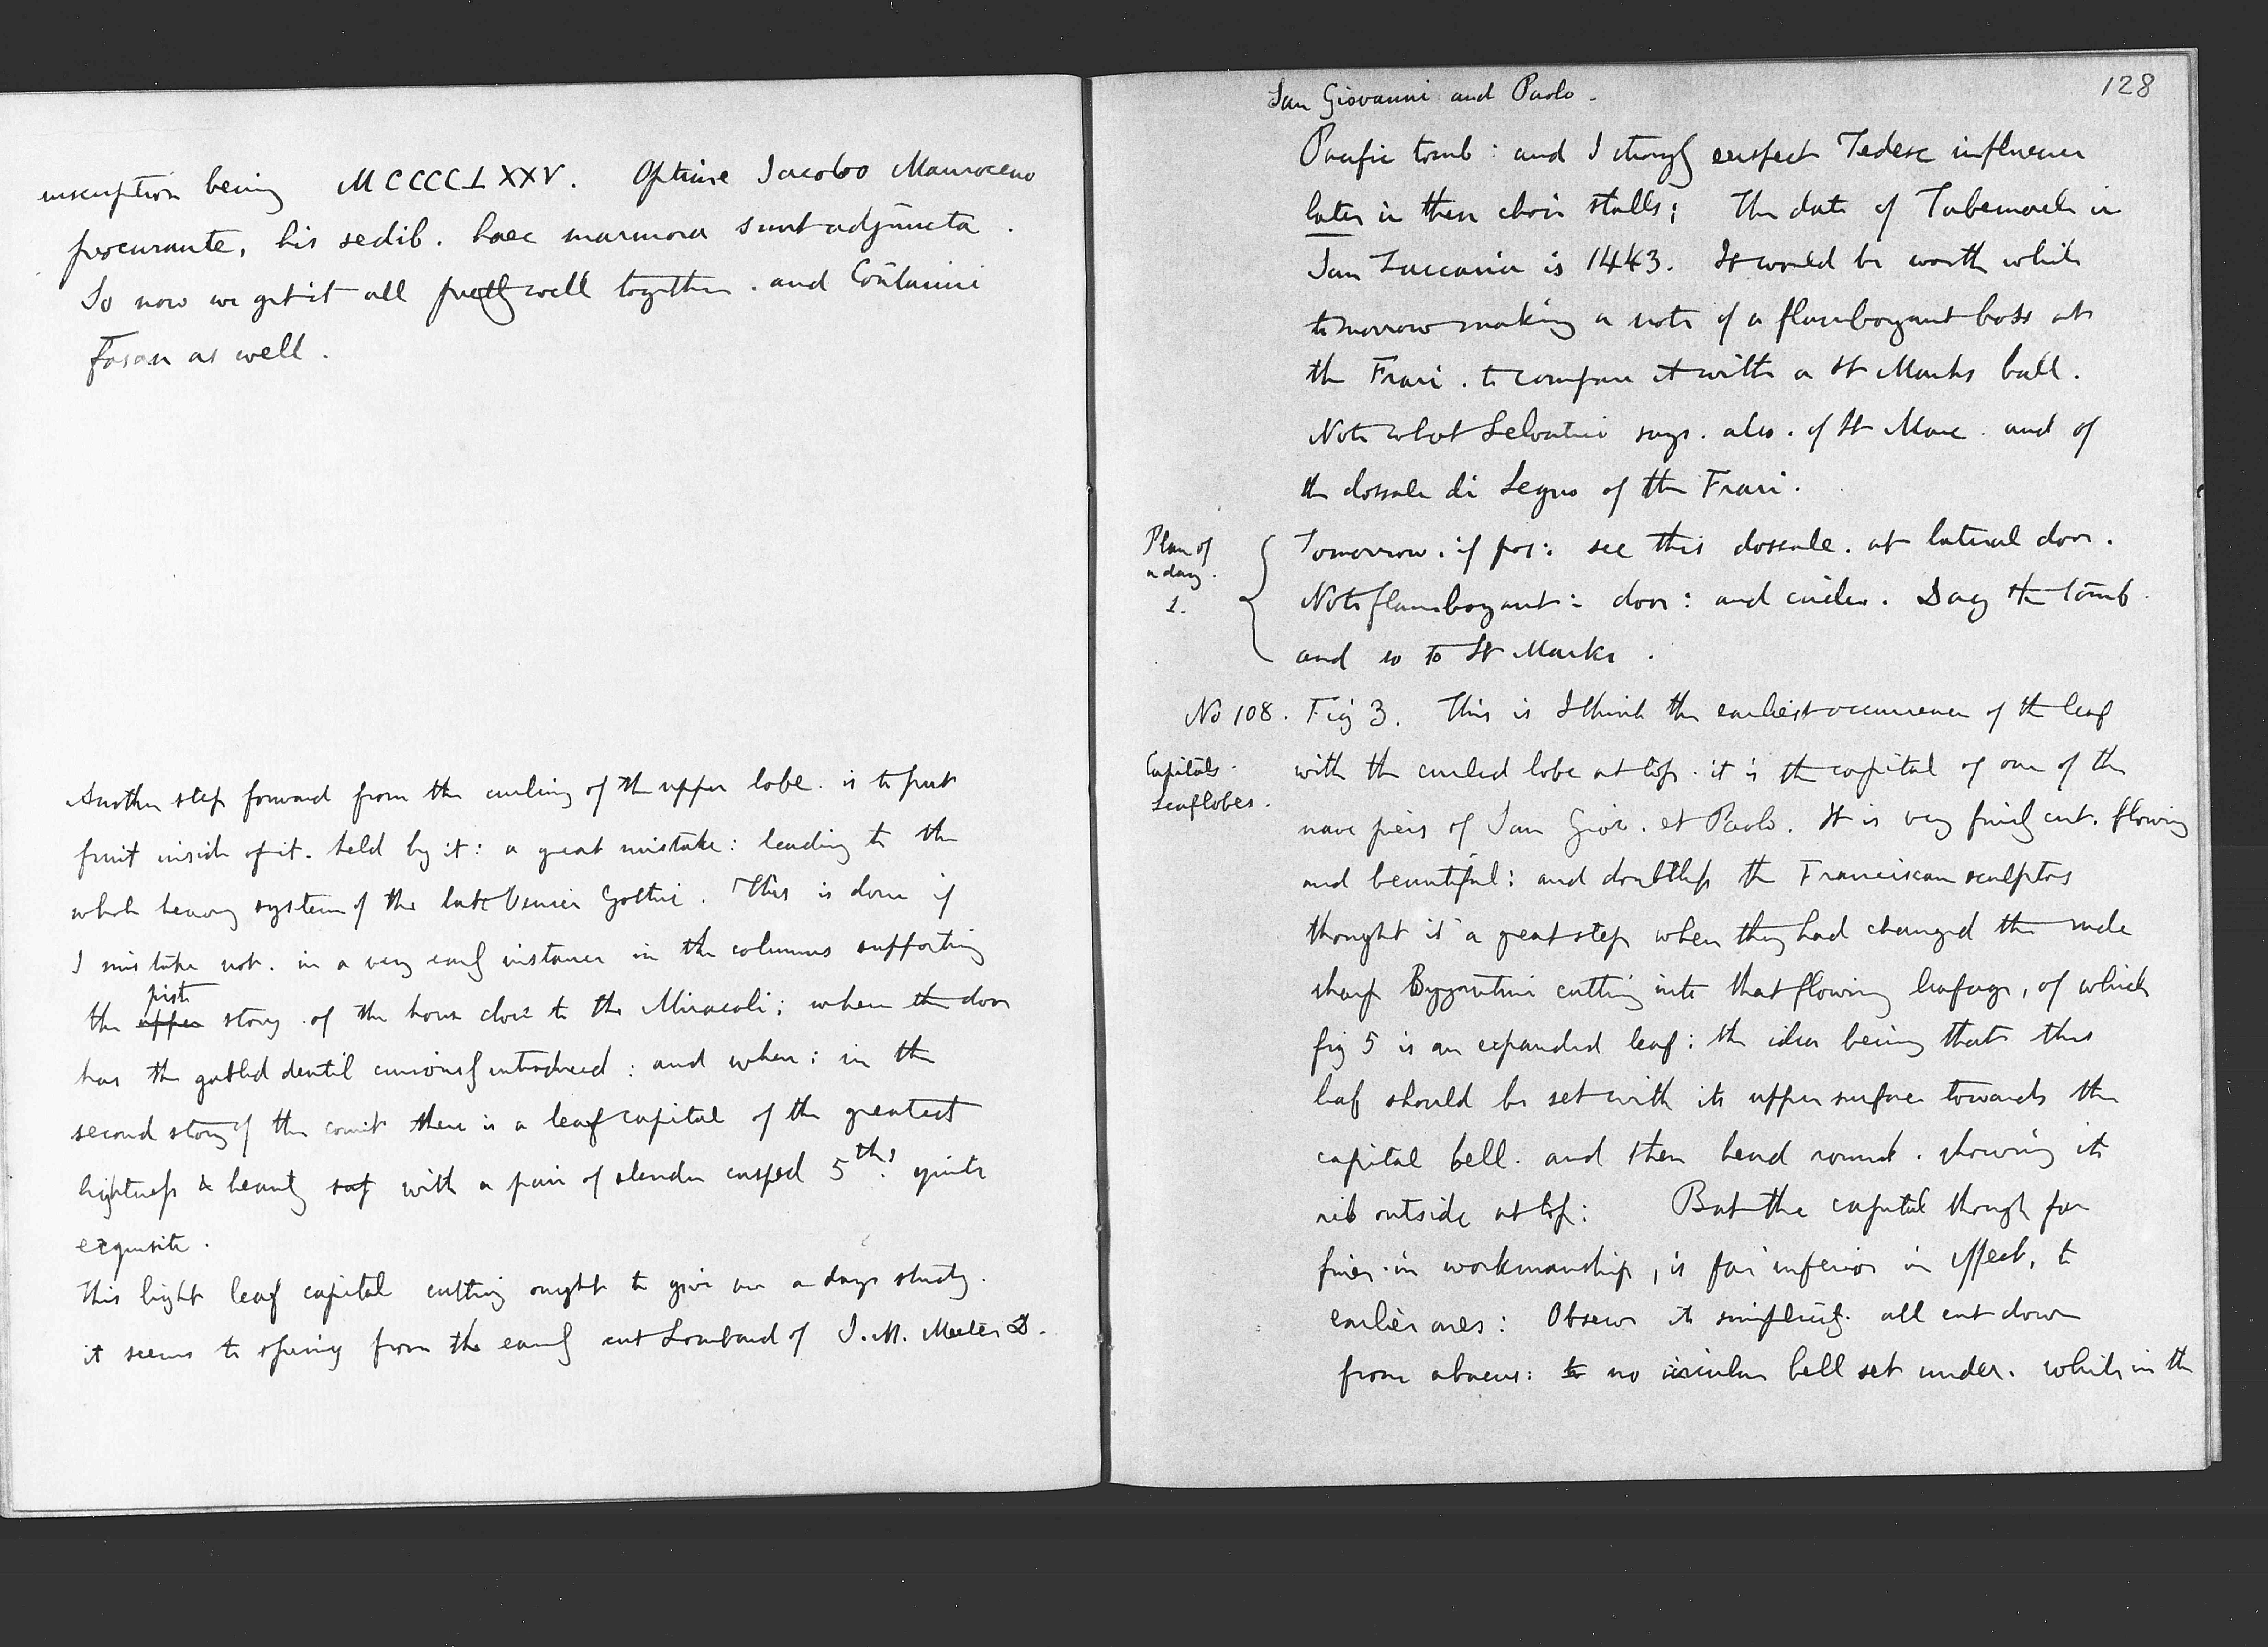 inscription being MCCCCLXXV. Optime Jacobo Mauroceno
procurante, his sedib. haec marmora sunt adjuncta.
So now we get it all pretty well together. and Contarini
Fasan as well.
Another step forward from the curling of the upper lobe. is to put
fruit inside of it. held by it: a great mistake: leading to the
whole heavy system of the late Venice Gothic. This is done if
I mistake not. in a very early instance in the columns supporting
first
the upper story of the house close to the Miracoli; where the door
has the gabled dentil curiously introduced: and where: in the
second story of the court there is a leaf capital of the greatest
lightness & beauty set with a pair of slender cusped 5ths. quite
exquisite.
This light leaf capital cutting ought to give me a days study.
it seems to spring from the early cut Lombard of S. M. Mater D.
128
San Giovanni and Paolo.
Pacific tomb: and I strongly suspect Tedesc influence
later in these choir stalls; The date of Tabernacle in
San Zaccaria is 1443. It would be worth while
tomorrow making a note of a flamboyant boss at
the Frari. to compare it with a St Marks ball.
Note what Selvatico says. also. of St Marc and of
the dossale di Legno of the Frari.
Plan of
a day.
1.
Tomorrow. if pos: see this dossale. at lateral door.
Note flamboyant: door: and circles. Dag the tomb
and so to St Marks.
No 108. Fig 3. This is I think the earliest occurrence of the leaf
Capitals.
Leaf lobes.
with the curled lobe at top. it is the capital of one of the
nave piers of San Giov. et Paolo. It is very finely cut. flowing
and beautiful: and doubtless the Franciscan sculptors
thought it a great step when they had changed the rude
sharp Byzantine cutting into that flowing leafage, of which
fig 5 is an expanded leaf: the idea being that this
leaf should be set with its upper surface towards the
capital bell. and then bend round. showing its
rib outside at top: But the capital though far
finer in workmanship, is far inferior in effect, to
earlier ones: Observe its simplicity. all cut down
from abacus: to no circular bell set under. while in the